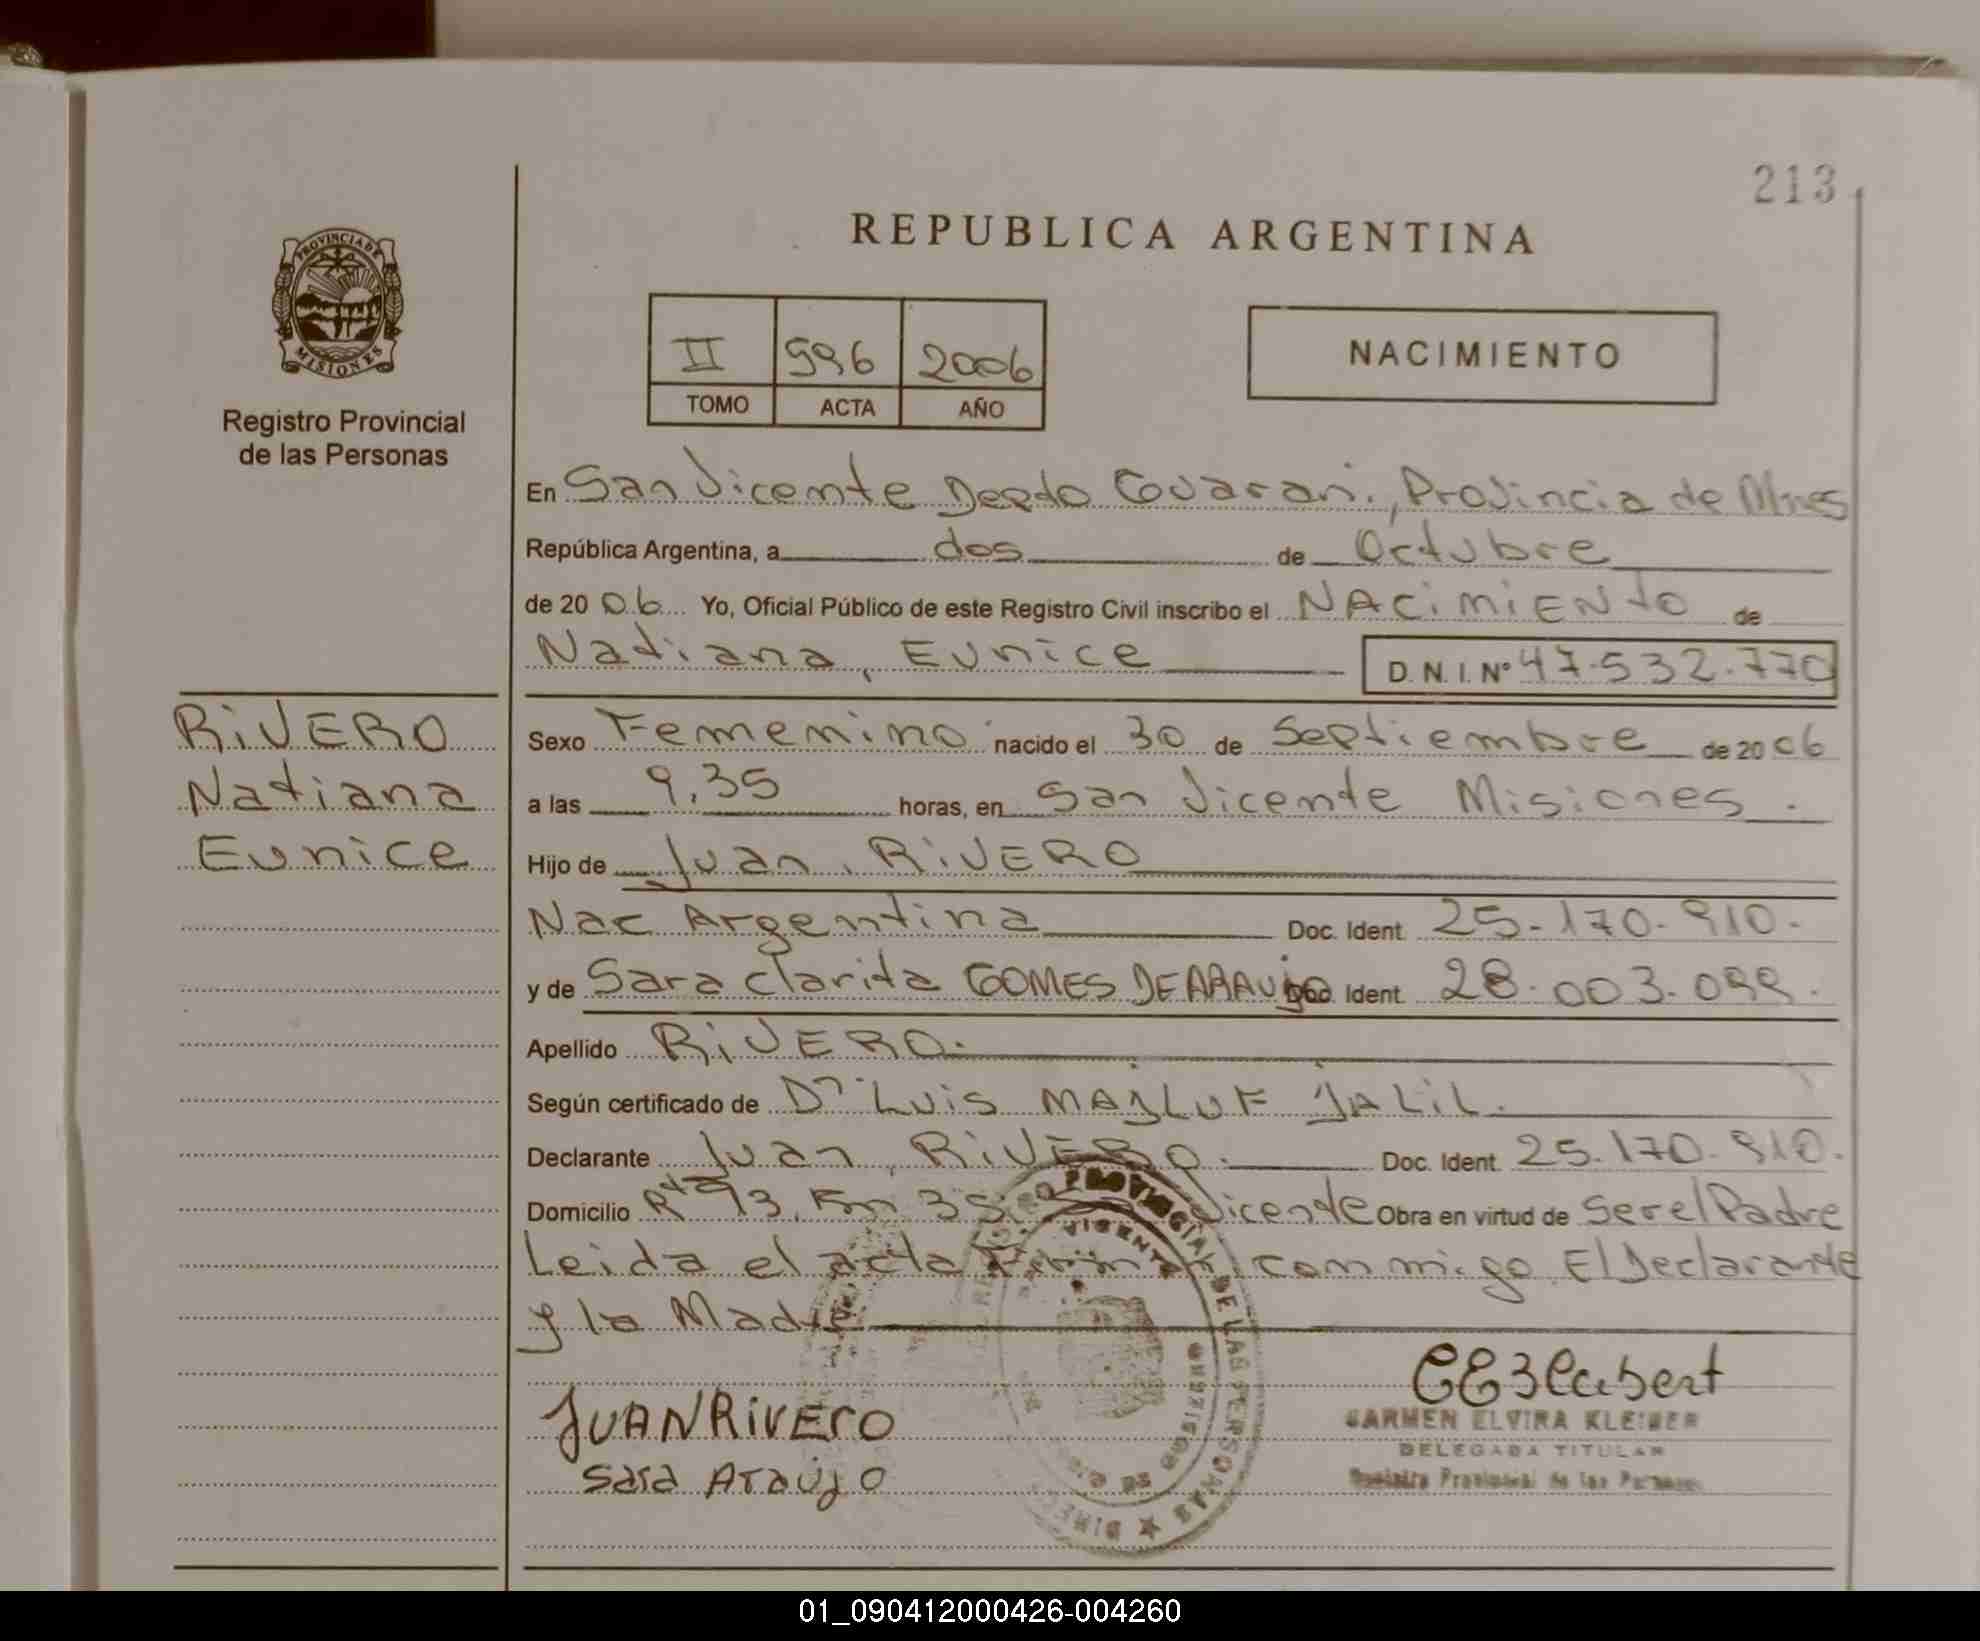 213
REPUBLICA ARGENTINA
PROVINCIA DE MISIONES
II 596 2006
TOMO ACTA AÑO
NACIMIENTO
Registro Provincial
de las Personas
En San Vicente Depto Guarani, Provincia de Mnes
República Argentina, a dos de Octubre
de 20 06 Yo, Oficial Público de este Registro Civil inscribo el NACiMiENto de
Natiana, Eunice D.N.I. Nº 47.532.770
RiVERO
Natiana
Eunice
Sexo Femenino nacido el 30 de Septiembre de 20 06
a las 9,35 horas, en San Vicente Misiones.
Hijo de Juan, RiVERO
Nac Argentina Doc. Ident. 25.170.910.
y de Sara Clarita GOMES DE ARAUjo Doc. Ident. 28.003.099.
Apellido RiVERO.
Según certificado de Dr. Luis MAjLUF jALiL.
Declarante Juan, RiVERO. Doc. Ident. 25.170.910.
Domicilio Rta 13, Km 35 Vicente Obra en virtud de Ser el Padre
Leida el acta conmigo El Declarante
y la Madre
JUAN RiVERO
Sara Araujo
CARMEN ELVIRA KLEIBER
DELEGADA TITULAR
Registro Provincial de las Personas
PROVINCIAL DE LAS PERSONAS
01_090412000426-004260